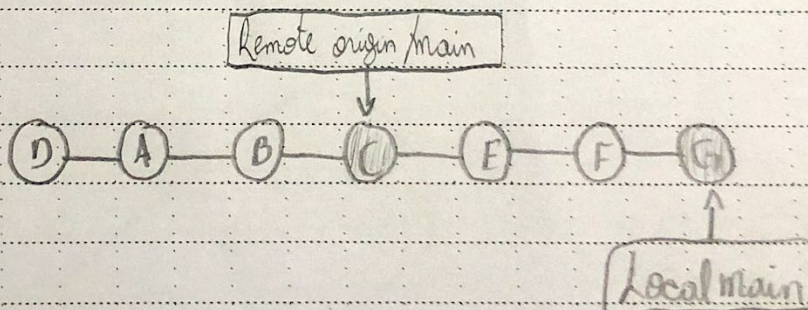 Remote origin/main
D A B C E F G
Local main